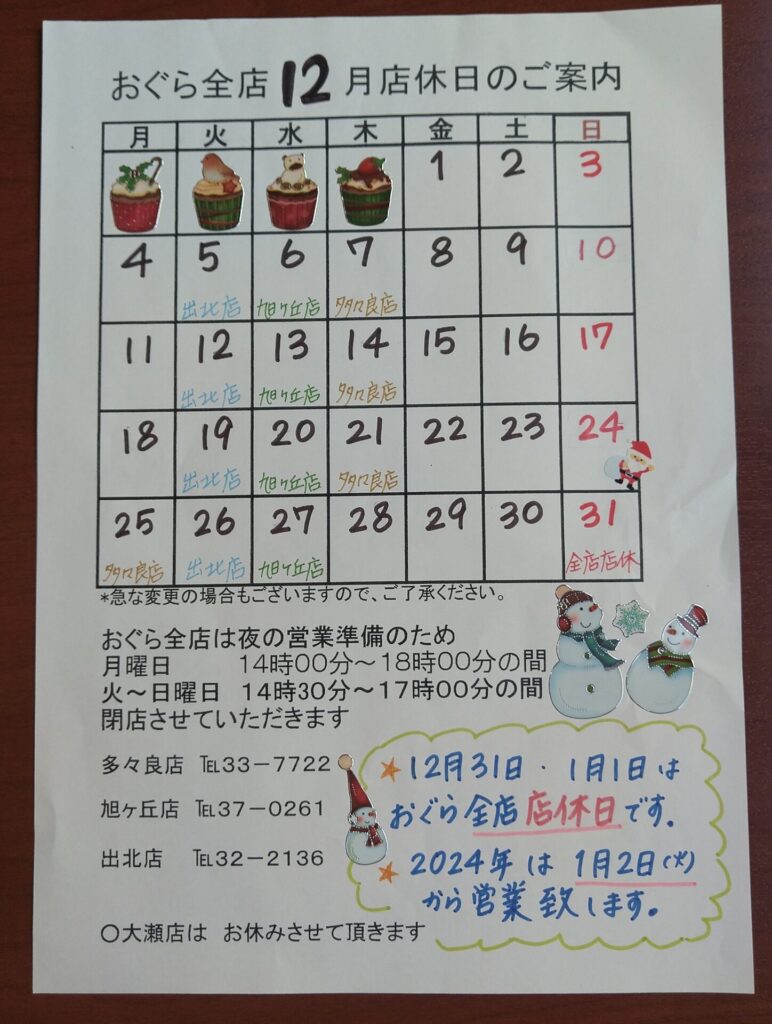 おぐら全店12月店休日のご案内
月 火 水 木 金 土 日
1 2 3
4 5 6 7 8 9 10
出北店 旭ヶ丘店 多々良店
11 12 13 14 15 16 17
出北店 旭ヶ丘店 多々良店
18 19 20 21 22 23 24
出北店 旭ヶ丘店 多々良店
25 26 27 28 29 30 31
多々良店 出北店 旭ヶ丘店 全店店休
*急な変更の場合もございますので、ご了承ください。
おぐら全店は夜の営業準備のため
月曜日 14時00分～18時00分の間
火～日曜日 14時30分～17時00分の間
閉店させていただきます
多々良店 ℡33－7722
旭ヶ丘店 ℡37－0261
出北店 ℡32－2136
〇大瀬店は お休みさせて頂きます
★12月31日・1月1日は
おぐら全店店休日です。
★2024年は1月2日(火)
から営業致します。